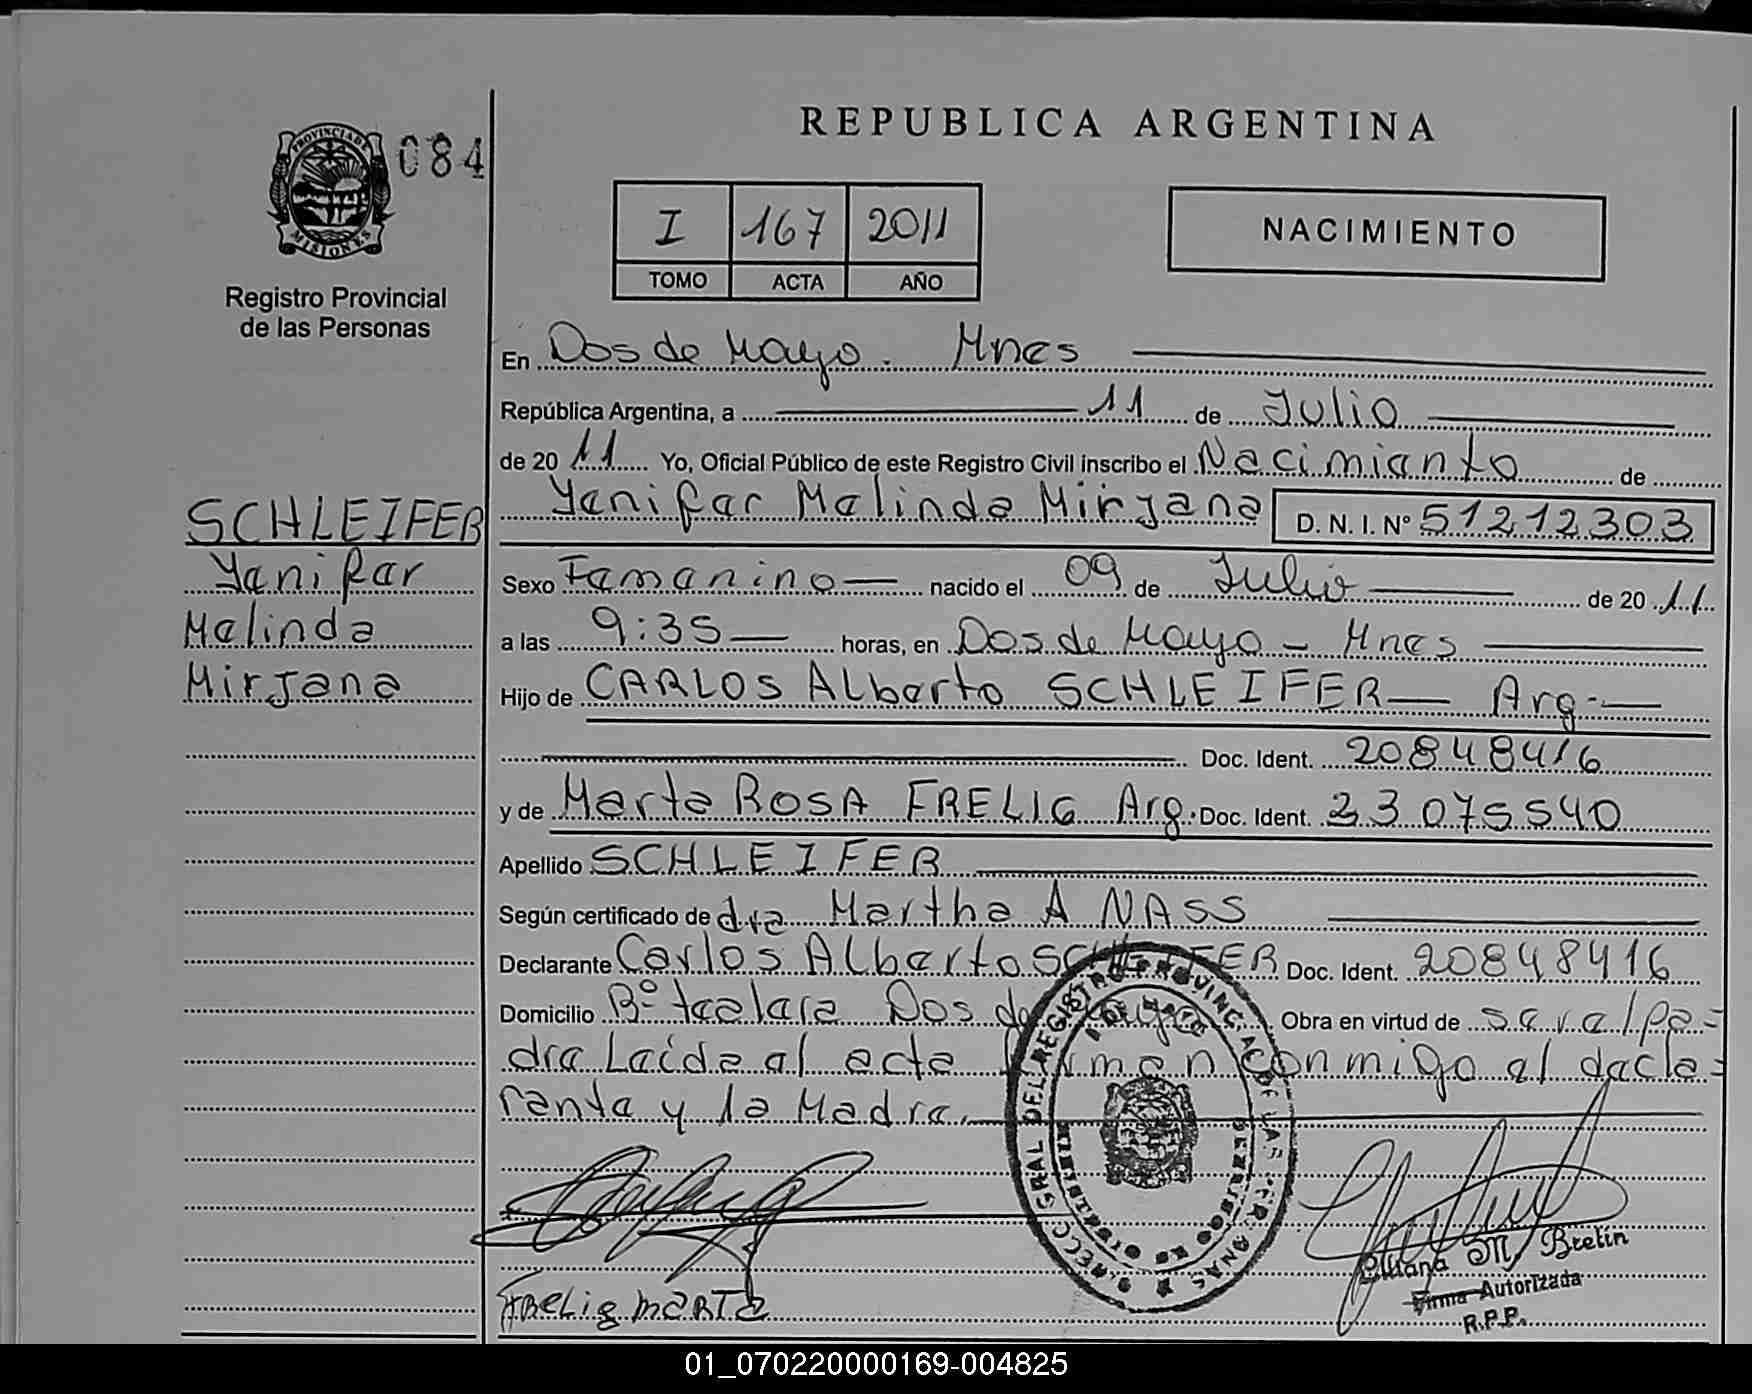 REPUBLICA ARGENTINA
PROVINCIA DE MISIONES
084
Registro Provincial
de las Personas
I 167 2011
TOMO ACTA AÑO
NACIMIENTO
En Dos de Mayo. Mnes
República Argentina, a 11 de Julio
de 20 11 Yo, Oficial Público de este Registro Civil inscribo el Nacimiento de
Yenifer Melinda Mirjana D. N. I. Nº 51212303
SCHLEIFER
Yenifer
Melinda
Mirjana
Sexo Femenino nacido el 09 de Julio de 20 11
a las 9:35 horas, en Dos de Mayo - Mnes
Hijo de CARLOS Alberto SCHLEIFER Arg.
Doc. Ident. 20848416
y de Marta ROSA FRELIG Arg. Doc. Ident. 23075540
Apellido SCHLEIFER
Según certificado de dra Martha A NASS
Declarante Carlos Alberto SCHLEIFER Doc. Ident. 20848416
Domicilio Bº Dos de Mayo Obra en virtud de ser el pa=
dre Leída al acta Firman conmigo el decla=
rante y la Madre.
FRELIG MARTA
M. Bretin
Firma Autorizada
R.P.P.
01_070220000169-004825